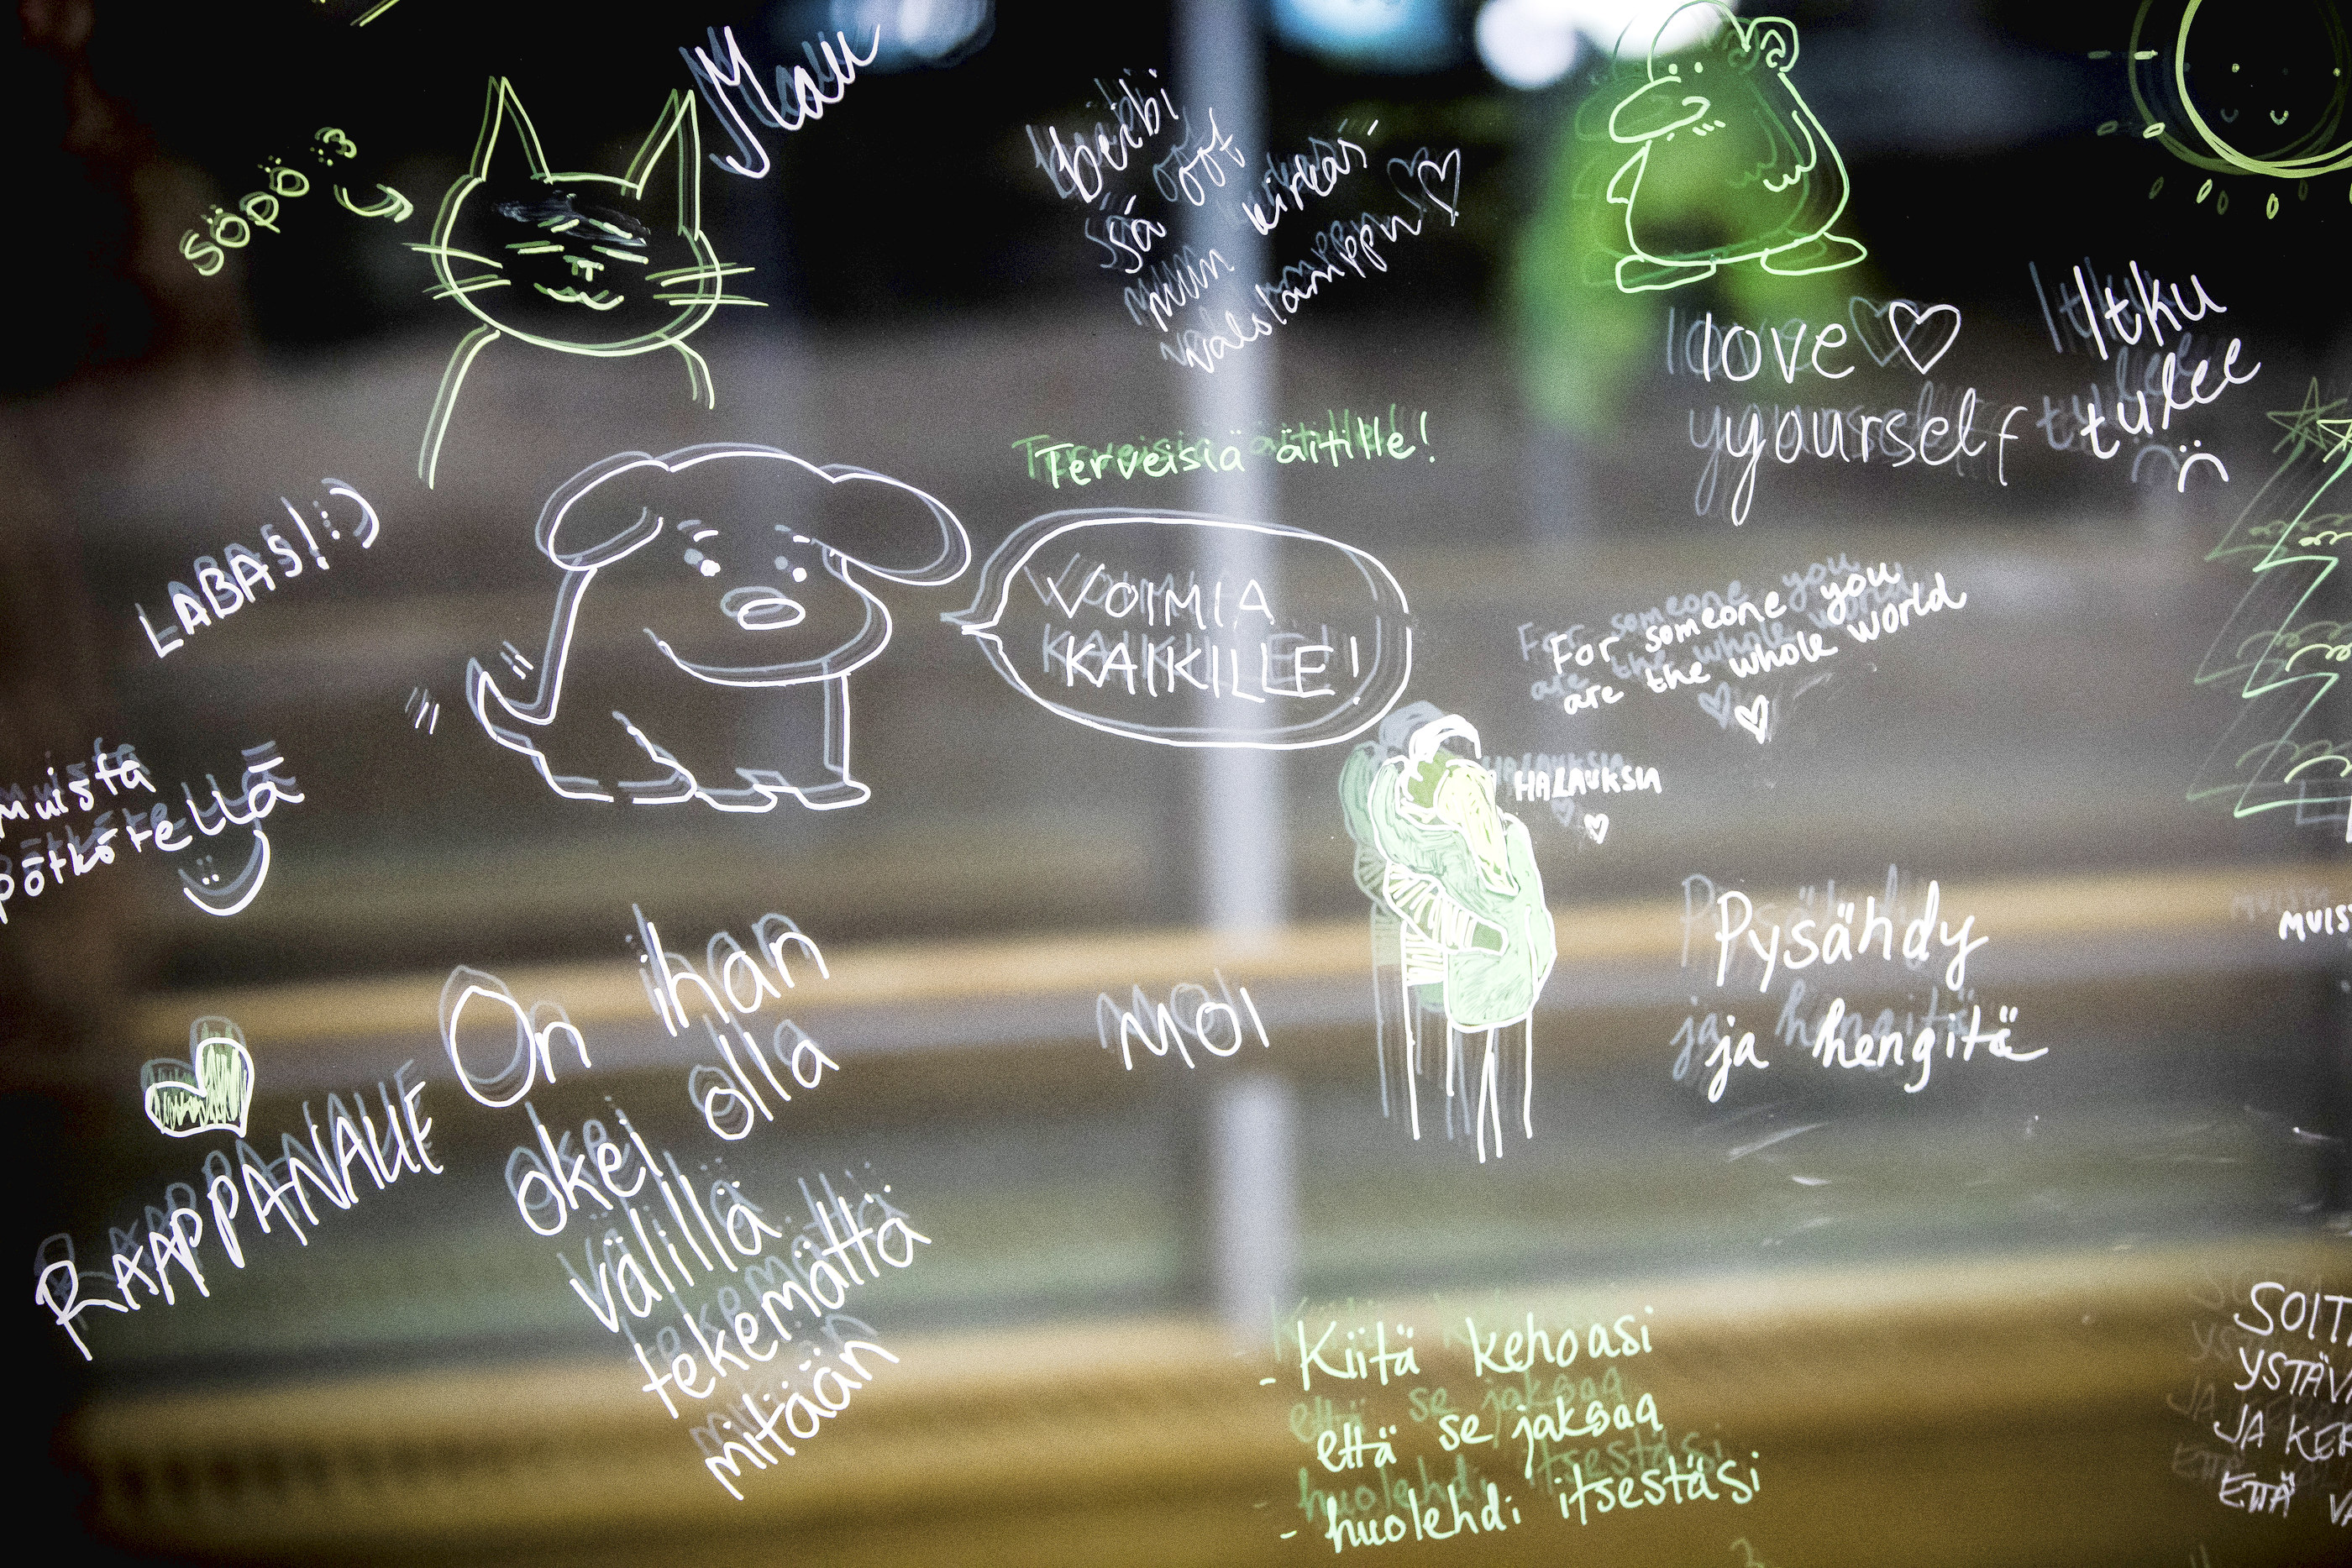 Mau
söpö :3
beibi
sä oot
mun kirkas
valolamppu ♡
love ♡
yourself
Itku
tulee
:(
Terveisiä äitille!
LABAS! :)
VOIMIA
KAIKILLE!
For someone you
are the whole world
♡
HALAUKSIA
♡
muista
pötkötellä
:)
Pysähdy
ja hengitä
MUIS
MOI
On ihan
okei olla
välillä
tekemättä
mitään
- Kiitä kehoasi
että se jaksaa
- huolehdi itsestäsi
SOIT
YSTÄV
JA KER
ETTÄ VA